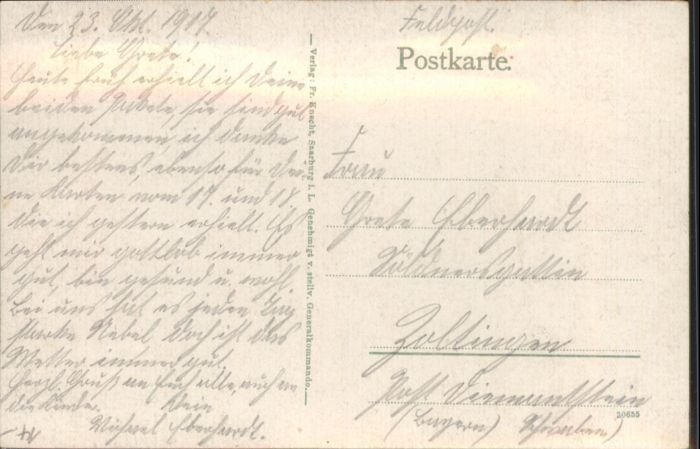 Den 23. Okt. 1917.
Liebe Grete!
Heute früh erhielt ich Deine
beiden Pakete sie sind gut
angekommen ich danke
Dir bestens ebenso für Dei-
ne Karten vom 17. und 18.
die ich gestern erhielt. Es
geht mir gottlob immer
gut, bin gesund u. wohl.
Bei uns hat es jeden Tag
starke Nebel doch ist das
Wetter immer gut.
Herzl. Gruß an Euch alle, auch an
die Kinder. Dein
Michael Eberhardt.
— Verlag: Fr. Knecht, Saarburg i. L. Genehmigt v. stellv. Generalkommando. —
Feldpost.
Postkarte.
Frau
Grete Eberhardt
Söldnersgattin
Zoltingen
Post Diemantstein
(Bayern) Schwaben)
20655